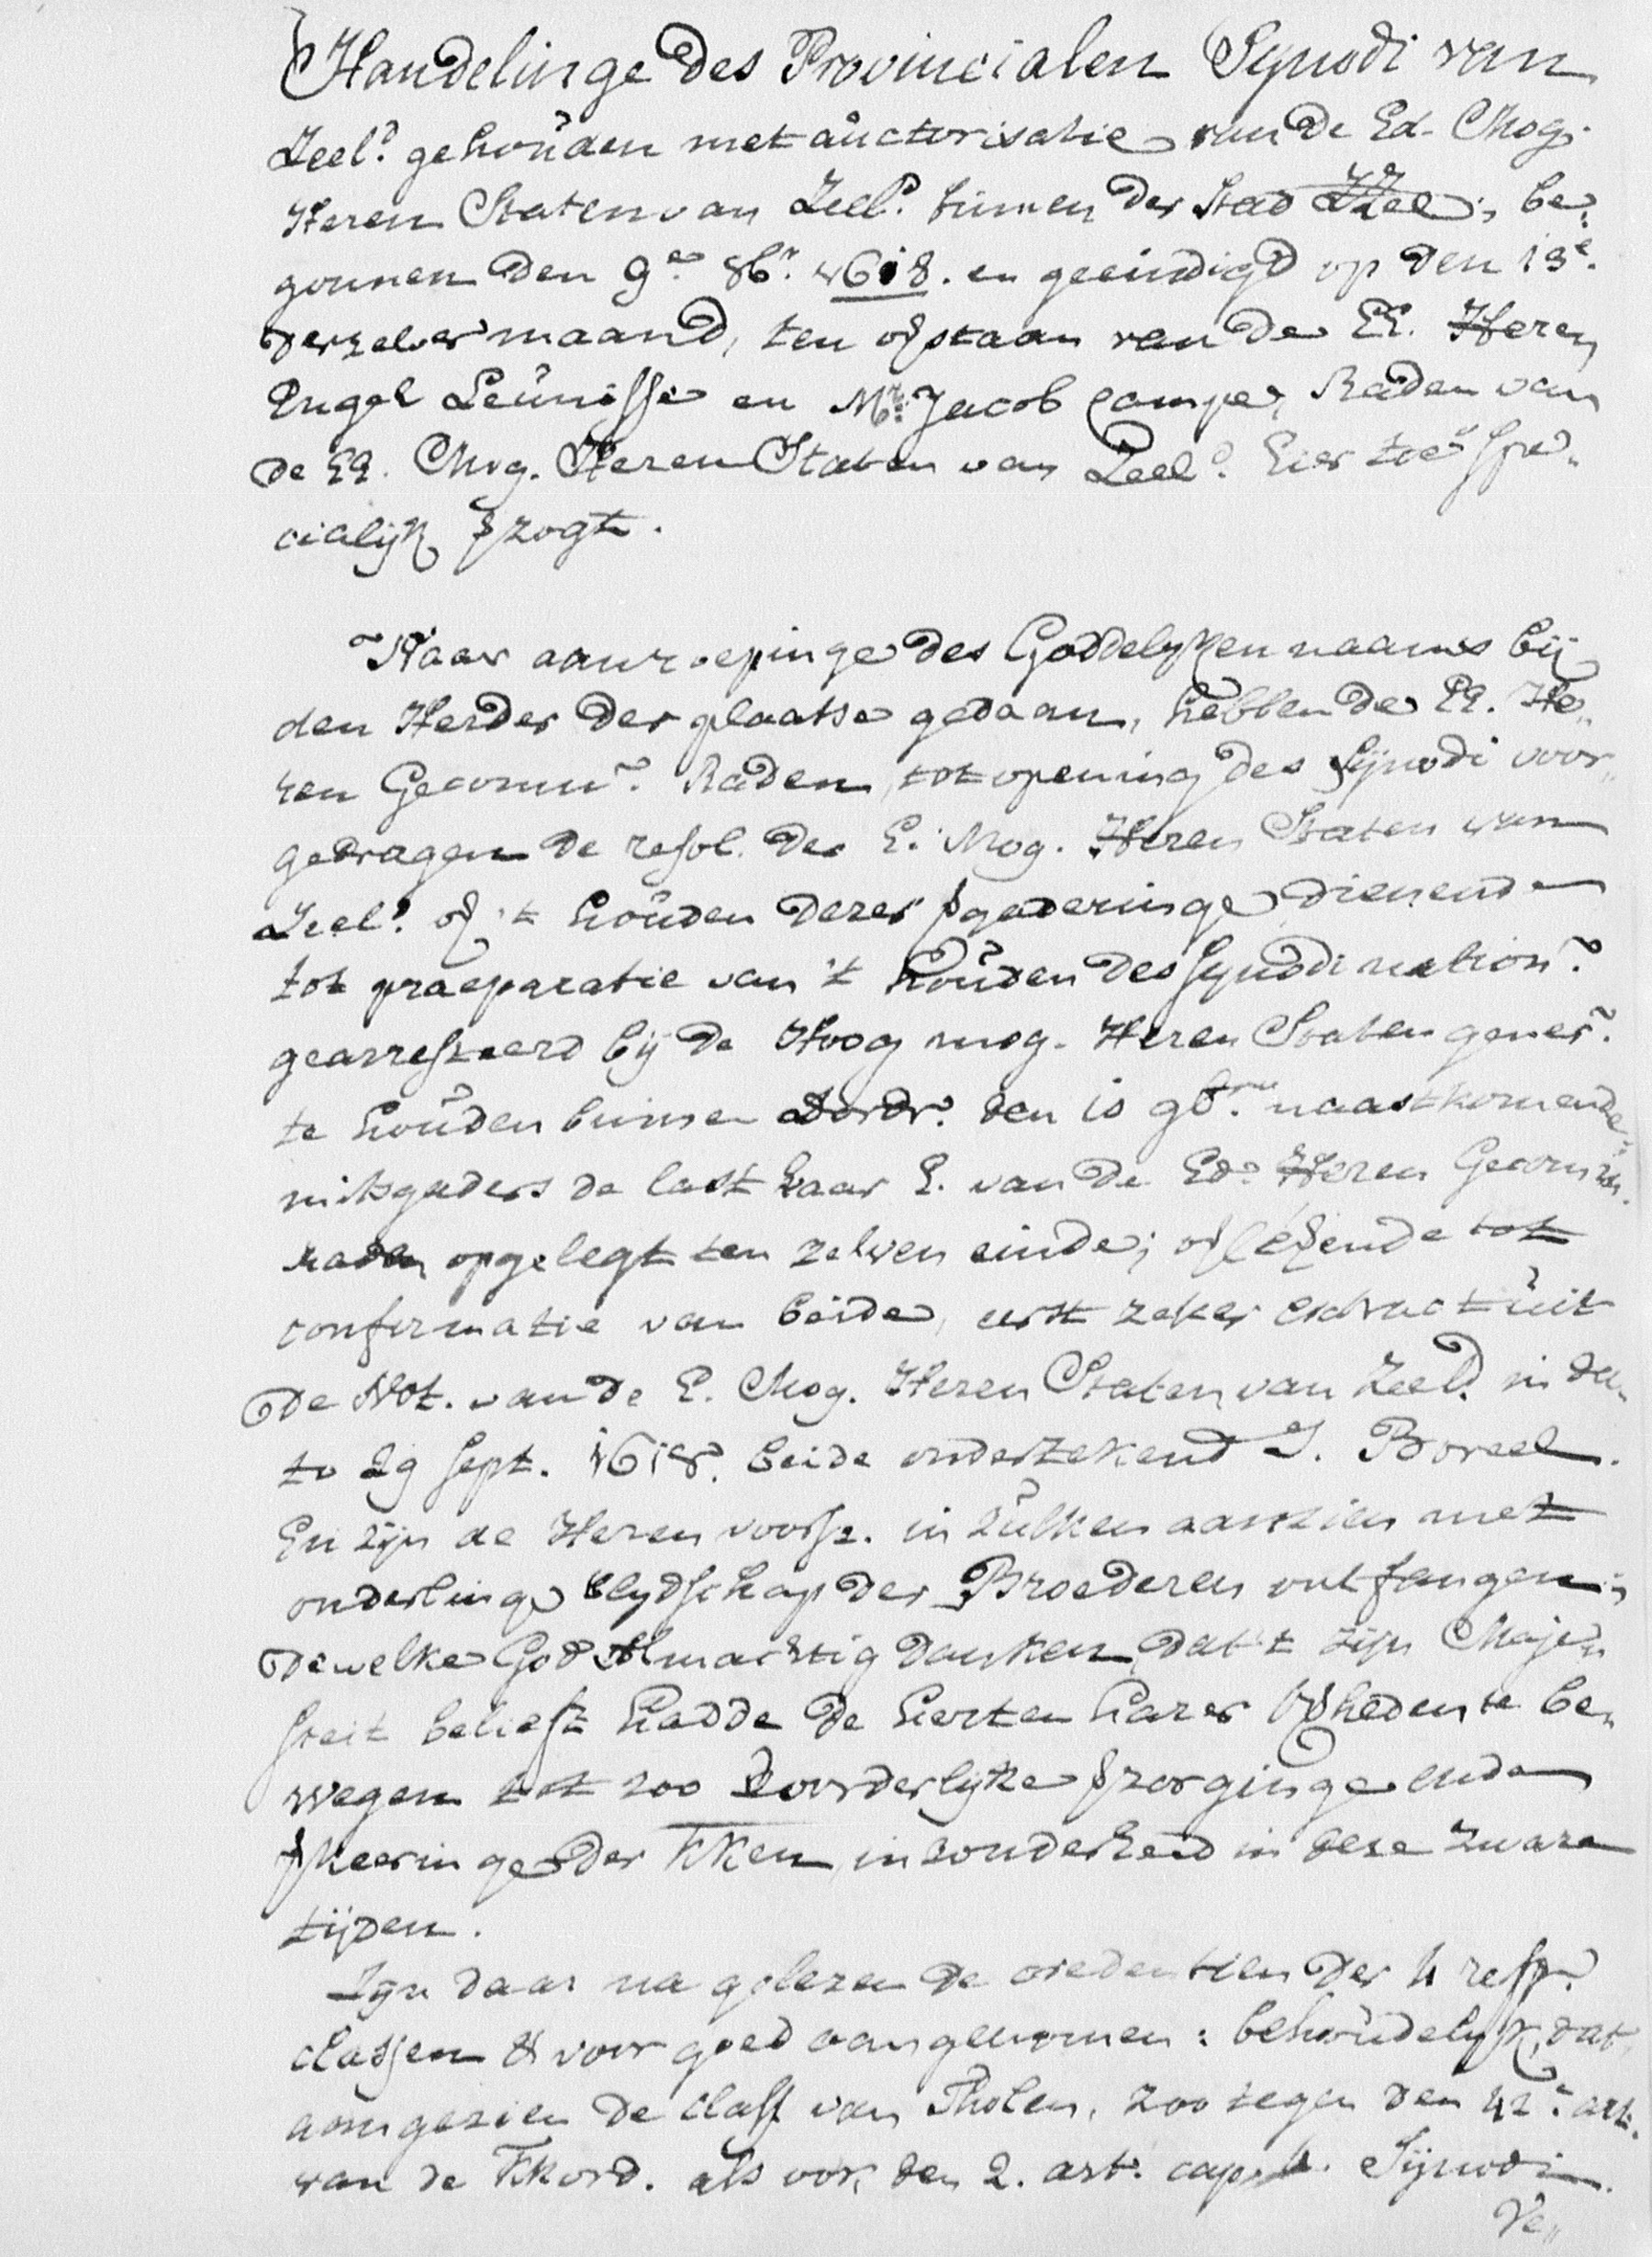 Handelinge des Provincialen Synodi van
Zeel.d gehouden met auctorisatie van de Ed. Mog.
Heren Staten van Zeel.d binnen der Stad ZZee; be„
gonnen den 9.en 8b.r 1618. en geeindigd op den 13.e
derzelver maand, ten ofstaan van de EE. Heren
Engel Leunisse en M.r Jacob Campe, Raden van
de EE. Mog. Heren Staten van Zeel.d hier toe spe„
cialijk ſzogt.
Naar aanroepinge des Goddelyken naams bij
den Herder der plaatse gedaan, hebben de EE. He„
ren Gecomm.e Raden, tot opening des Synodi voor„
gedragen de resol. der E. Mog. Heren Staten van
Zeel.d of 't houden dezer ſgaderinge dienende
tot praeparatie van 't houden des Synodi nation.
gearresteerd bij de Hoog mog. Heren Staten gener.
te houden binnen Dordr. den 1o 9b. naastkomende„
mitsgaders de last haar E. van de Ed. Heren Gecomm.
raden opgelegt ten zelven einde; oflezende tot
confirmatie van beide, eerst zeker extract uit
de Not. van de E. Mog. Heren Staten van Zeeld. in da„
to 29 Sept. 1618. beide onderzekend J. Boreel.
En zijn de Heren voorsz. in zulken aanzien met
onderlinge blydschap der Broederen ontfangen;
dewelke God Almachtig danken dat 't zijn Maje„
steit belieft hadde de herten harer Ofheden te be„
wegen tot zoo voorderlyke ſzorginge ende
ſkeeringe der KKen, insonderheid in deze zware
tijden.
Zijn daar na gelezen de credentien der 4 resp.
classen & voor goed aangenomen: behoudelyk, dat,
aangezien de class van Tholen, zoo tegen den 42.e art.
van de KKord. als ook den 2. art. cap. Synodi.
Ve„